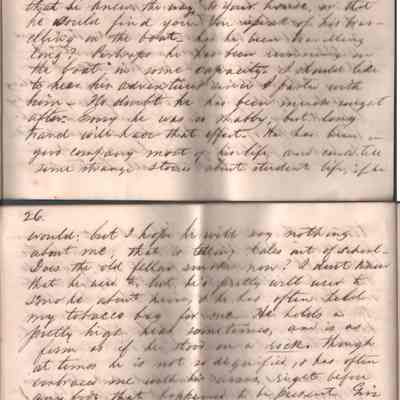 that he knew the way to your house, or that
he would find you. You speak of his trav-
elling on the boat. has he been travelling
long? Perhaps he has been running on
the boat, in some capacity. I should like
to hear his adventures since I parted with
him. No doubt he has been much sought
after. Sorry he was so shabby, but long
hard will have that effect. He has been in
good company most of his life, and could tell
some strange stories about student life, if he
26.
would; but I hope he will say nothing
about me, that is telling tales out of school.
Does the old fellow smoke now? I don't know
that he used to, but, he's pretty well used to
smoke about him, & he has often held
my tobacco bag for me. He holds a
pretty high head sometimes, and is as
firm as if he stood on a rock. Though
at times he is not so dignified, & has often
embraced me with his arms, right before
any body that happened to be present. Give